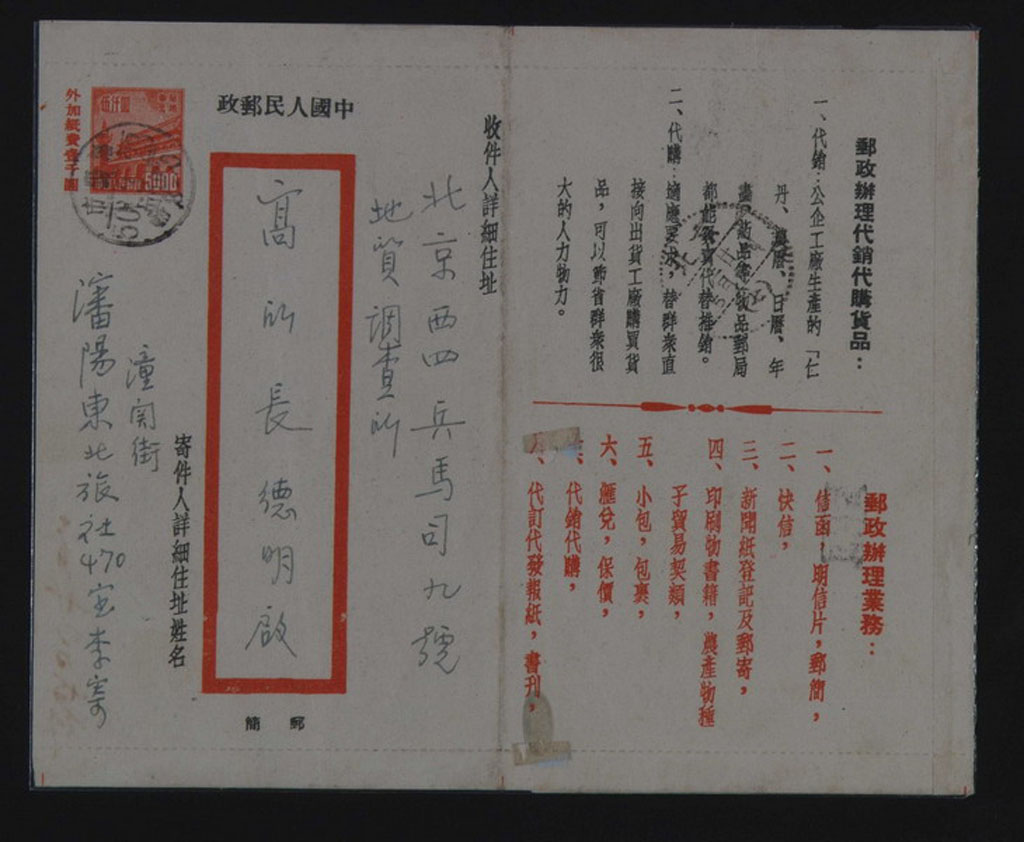 郵政辦理代銷代購貨品：
一、代銷：公企工廠生產的「仁
丹、農曆、日曆、年
品郵局
都能 代替推銷。
二、代購：適應要求，替群衆直
接向出貨工廠購買貨
品，可以節省群衆很
大的人力物力。
郵政辦理業務：
一、信函，明信片，郵簡，
二、快信，
三、新聞紙登記及郵寄，
四、印刷物書籍，農產物種
子貿易契類，
五、小包，包裹，
六、匯兌，保價，
代銷代購，
代訂代發報紙，書刊，
收件人詳細住址
北京西四兵馬司九號
地質調查所
中國人民郵政
高所長德明啟
郵簡
寄件人詳細住址姓名
潼関街
瀋陽東北旅社470室李寄
伍仟圓
5000
外加紙費壹千圓